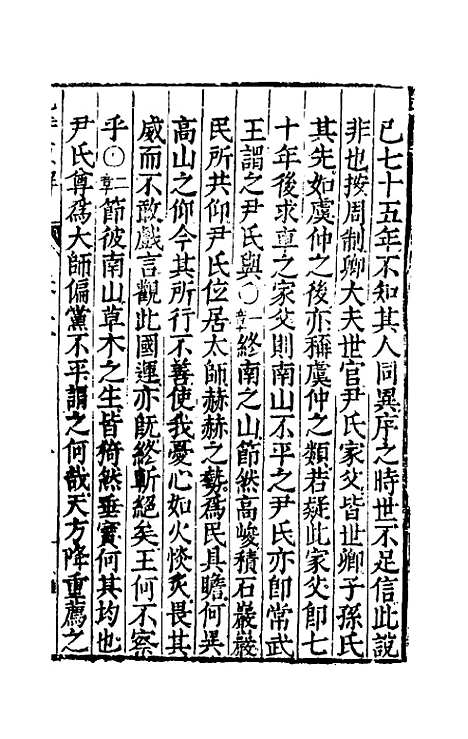 已七十五年不知其人同異序之時世不足信此說
非也按周制卿大夫世官尹氏家父皆世卿子孫氏
其先如虞仲之後亦稱虞仲之類若疑此家父即七
十年後求車之家父則南山不平之尹氏亦即常武
王謂之尹氏與○一章終南之山節然高峻積石巖巖
民所共仰尹氏位居太師赫赫之勢爲民具瞻何異
高山之仰今其所行不善使我憂心如火惔炙畏其
威而不敢戲言觀此國運亦旣終斬絕矣王何不察
乎○二章節彼南山草木之生皆猗然垂實何其均也
尹氏尊爲大師偏黨不平謂之何哉天方降重薦之